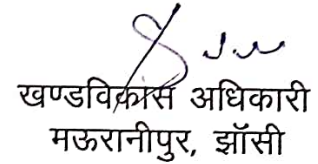 खण्डविकास अधिकारी
मऊरानीपुर, झॉसी